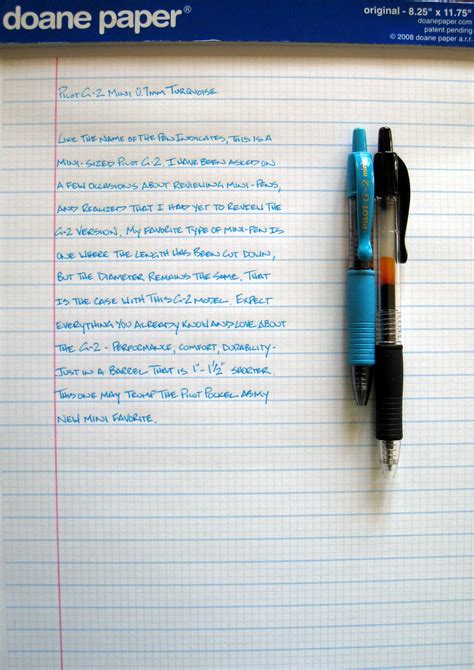 doane paper®
original - 8.25" x 11.75"
doanepaper.com
patent pending
© 2008 doane paper a.r.r.
PILOT G-2 MINI 0.7MM TURQUOISE
LIKE THE NAME OF THE PEN INDICATES, THIS IS A
MINI-SIZED PILOT G-2. I HAVE BEEN ASKED ON
A FEW OCCASIONS ABOUT REVIEWING MINI-PENS,
AND REALIZED THAT I HAD YET TO REVIEW THE
G-2 VERSION. MY FAVORITE TYPE OF MINI-PEN IS
ONE WHERE THE LENGTH HAS BEEN CUT DOWN,
BUT THE DIAMETER REMAINS THE SAME. THAT
IS THE CASE WITH THIS G-2 MODEL. EXPECT
EVERYTHING YOU ALREADY KNOW AND LOVE ABOUT
THE G-2 - PERFORMANCE, COMFORT, DURABILITY -
JUST IN A BARREL THAT IS 1" - 1½" SHORTER.
THIS ONE MAY TRUMP THE PILOT POCKEL AS MY
NEW MINI FAVORITE.
PILOT G-2 mini